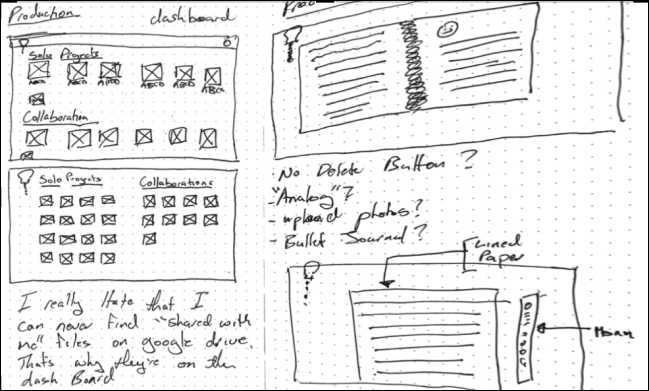 Production dashboard
Solo Projects
ABCD ABCD ABCD ABCD ABCD ABCD
Collaboration
Solo Projects
Collaborations
I really Hate that I
can never find "shared with
me" files on google drive.
That's why they're on the
dash Board
No Delete Button?
- "Analog"?
- upload photos?
- Bullet Journal?
Lined
Paper